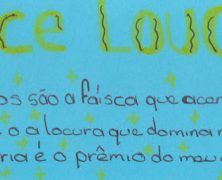 ce Louc
os são a faísca que acen
e o a locura que domina
ria é o prêmio do meu